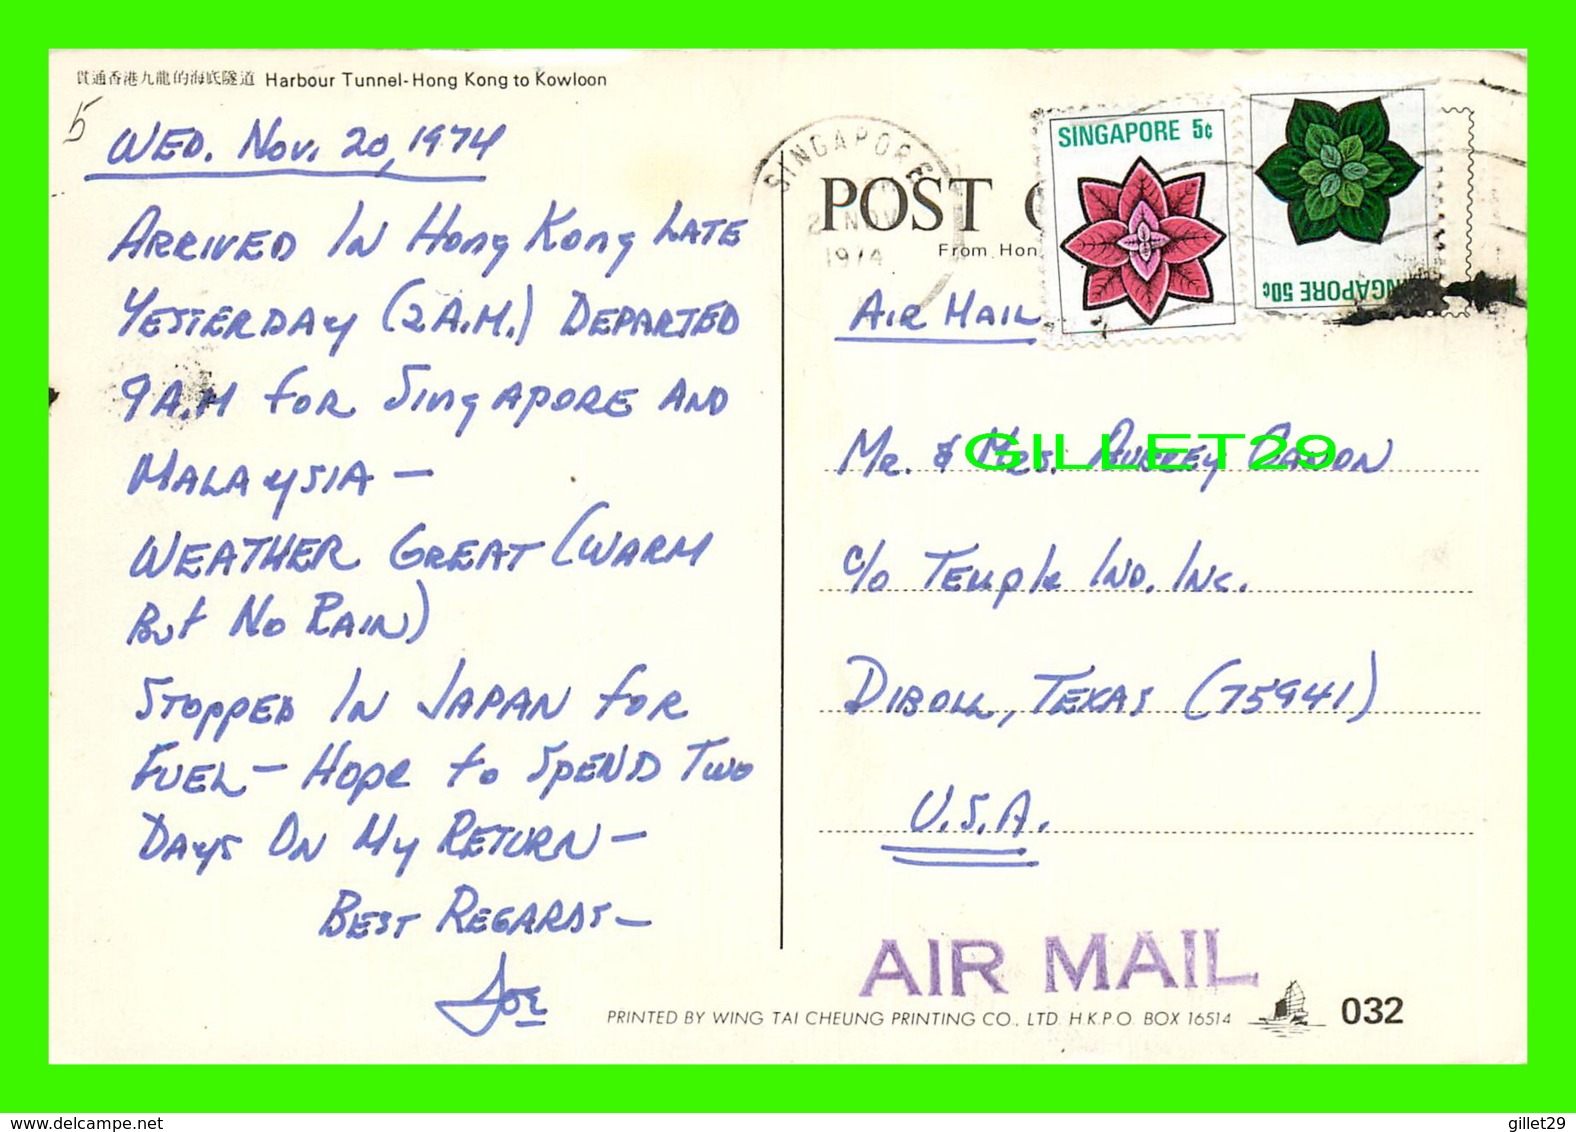 貫通香港九龍的海底隧道 Harbour Tunnel-Hong Kong to Kowloon
5
WED. NOV. 20, 1974
ARRIVED IN HONG KONG LATE
YESTERDAY (2 A.M.) DEPARTED
9 A.M FOR SINGAPORE AND
MALAYSIA —
WEATHER GREAT (WARM
BUT NO RAIN)
STOPPED IN JAPAN FOR
FUEL — HOPE TO SPEND TWO
DAYS ON MY RETURN —
BEST REGARDS —
JOE
SINGAPORE
NOV
1974
POST C
From Hon
SINGAPORE 5c
SINGAPORE 50c
AIR MAIL
MR. & MRS. AUBREY
GILLET29
C/O TEMPLE IND. INC.
DIBOLL, TEXAS (75941)
U.S.A.
AIR MAIL
PRINTED BY WING TAI CHEUNG PRINTING CO., LTD. H.K.P.O. BOX 16514
032
www.delcampe.net
gillet29